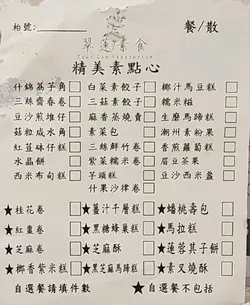 枱號: 餐/散
翠蓮素食
精美素點心
什錦荔芋角 □ 白菜素餃 □ 椰汁馬豆糕 □
三絲齋春卷 □ 三菇素餃 □ 糯米糍 □
豆沙煎堆仔 □ 豆苗素餃 □ 生磨馬蹄糕 □
菇粒咸水角 □ 素菜包 □ 潮州素粉果 □
紅荳砵仔糕 □ 三絲鮮竹卷 □ 香煎蘿蔔糕 □
水晶餅 □ 紫菜糯米卷 □ 眉豆茶果 □
西米布甸糕 □ 芋頭糕 □ 豆沙西米盞 □
什果沙律卷 □
★桂花卷 □ ★薑汁千層糕 □ ★蟠桃壽包 □
★紅棗卷 □ ★黑糖蜂巢糕 □ ★馬拉糕 □
★芝麻卷 □ ★芝麻酥 □ ★蓮蓉其子餅 □
★椰香紫米糕 □ ★黑芝麻馬蹄糕 □ ★素叉燒酥 □
自選餐請填件數 ★自選餐不包括